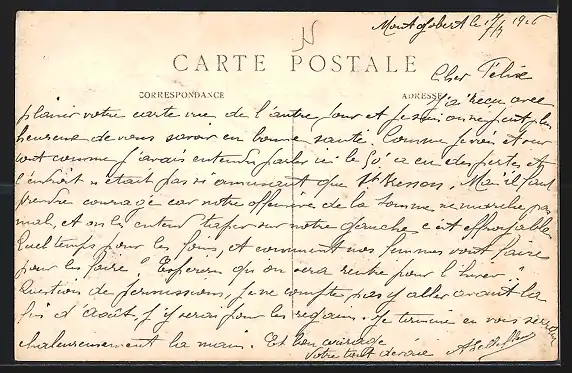 Montgobert le 17/7 1916
CARTE POSTALE
Cher Félix
CORRESPONDANCE
ADRESSE
J'ai reçu avec
plaisir votre carte vue de l'autre jour et je suis on ne peut plus
heureux de vous savoir en bonne santé. Comme je vois et sur
tout comme j'avais entendu parler ici le 60e a eu des pertes et
l'endroit n'était pas si amusant que St Besson. Mais il faut
prendre courage car notre offensive de la Somme ne marche pas
mal, et on les entend taper sur notre gauche c'est effroyable
Quel temps pour les foins, et comment nos femmes vont faire
pour les faire? Espérons qu'on sera rentré pour l'hiver?
Question de permissions, je ne compte pas y aller avant la
fin d'Août, j'y serai pour les regains. Je termine en vous serrant
chaleureusement la main. Et bon courage
Votre tout dévoué